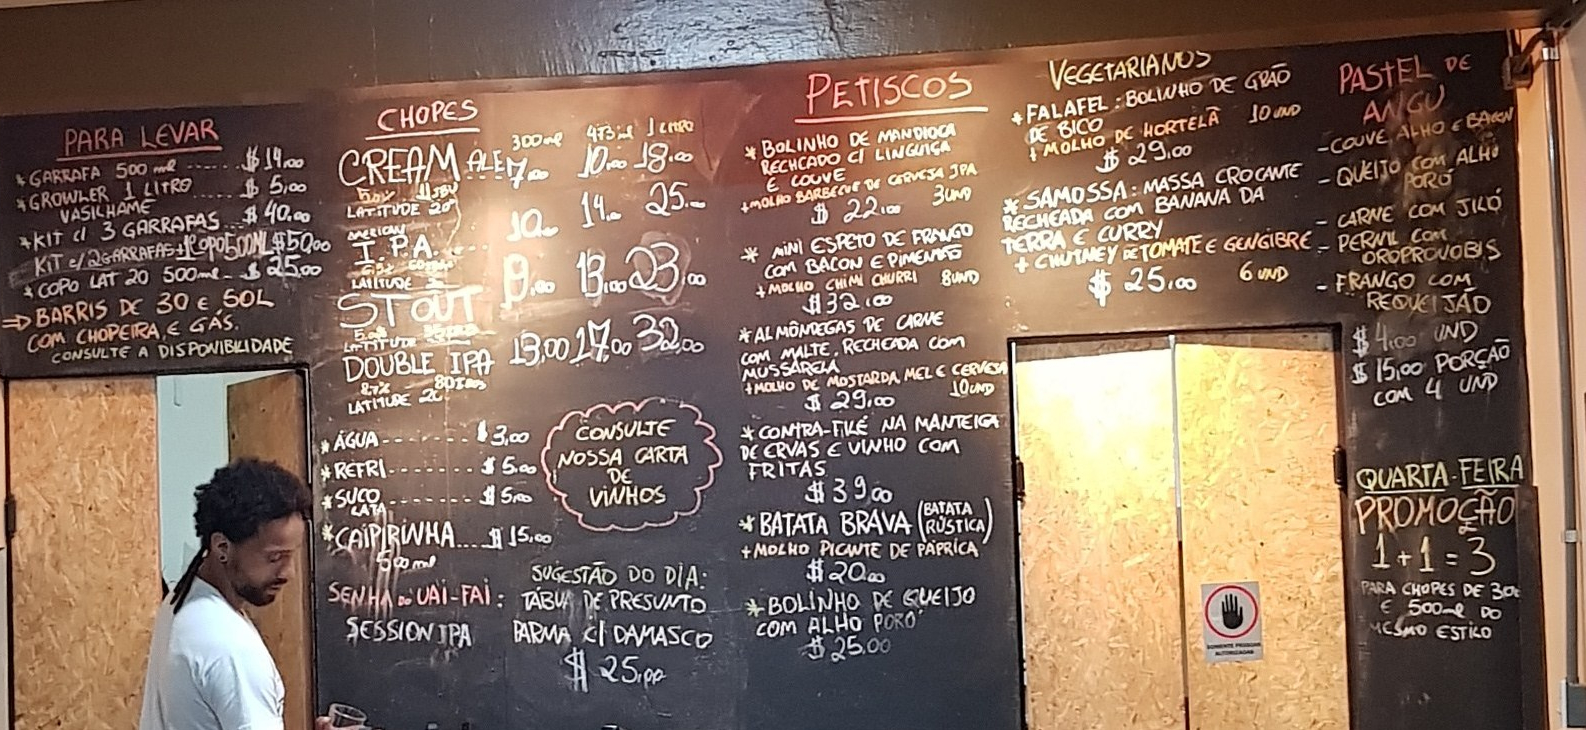 PARA LEVAR
* GARRAFA 500 ml ----- $ 14,00
* GROWLER 1 LITRO ... $ 5,00
VASILHAME
* KIT c/ 3 GARRAFAS ... $ 40,00
KIT c/ 2 GARRAFAS + 1 COPO 500ML $50,00
* COPO LAT 20 500ml - $ 25,00
⇒ BARRIS DE 30 E 50L
COM CHOPEIRA E GÁS.
CONSULTE A DISPONIBILIDADE
CHOPES
300ml 473ml 1 LITRO
CREAM ALE 7,00 10,00 18,00
LATITUDE 20°
AMERICAN
I.P.A. .... 10,00 14,00 25,00
LATITUDE
STOUT 9,00 13,00 23,00
LATITUDE
DOUBLE IPA 13,00 17,00 32,00
8,7% 80 IBUs
LATITUDE 20
* ÁGUA -------- $ 3,00
* REFRI ........ $ 5,00
* SUCO ........ $ 5,00
LATA
* CAIPIRINHA .... $ 15,00
500 ml
CONSULTE
NOSSA CARTA
DE
VINHOS
SENHA DO UAI-FAI:
SESSION IPA
SUGESTÃO DO DIA:
TÁBUA DE PRESUNTO
PARMA C/ DAMASCO
$ 25,00
PETISCOS
* BOLINHO DE MANDIOCA
RECHEADO C/ LINGUIÇA
E COUVE
+ MOLHO BARBECUE DE CERVEJA IPA
$ 22,00 3 UND
* MINI ESPETO DE FRANGO
COM BACON E PIMENTÃO
+ MOLHO CHIMI CHURRI 8 UND
$ 32,00
* ALMÔNDEGAS DE CARNE
COM MALTE, RECHEADA COM
MUSSARELA
+ MOLHO DE MOSTARDA MEL E CERVEJA
$ 29,00 10 UND
* CONTRA-FILÉ NA MANTEIGA
DE ERVAS E VINHO COM
FRITAS
$ 39,00
* BATATA BRAVA (BATATA RÚSTICA)
+ MOLHO PICANTE DE PÁPRICA
$ 20,00
* BOLINHO DE QUEIJO
COM ALHO PORÓ
$ 25,00
VEGETARIANOS
* FALAFEL: BOLINHO DE GRÃO
DE BICO
+ MOLHO DE HORTELÃ 10 UND
$ 29,00
* SAMOSSA: MASSA CROCANTE
RECHEADA COM BANANA DA
TERRA E CURRY
+ CHUTNEY DE TOMATE E GENGIBRE
$ 25,00 6 UND
PASTEL DE
ANGU
- COUVE ALHO E BACON
- QUEIJO COM ALHO
PORÓ
- CARNE COM JILÓ
- PERNIL COM
OROPRONOBIS
- FRANGO COM
REQUEIJÃO
$ 4,00 UND
$ 15,00 PORÇÃO
COM 4 UND
QUARTA-FEIRA
PROMOÇÃO
1 + 1 = 3
PARA CHOPES DE 300
E 500ml DO
MESMO ESTILO
SOMENTE PESSOAS
AUTORIZADAS